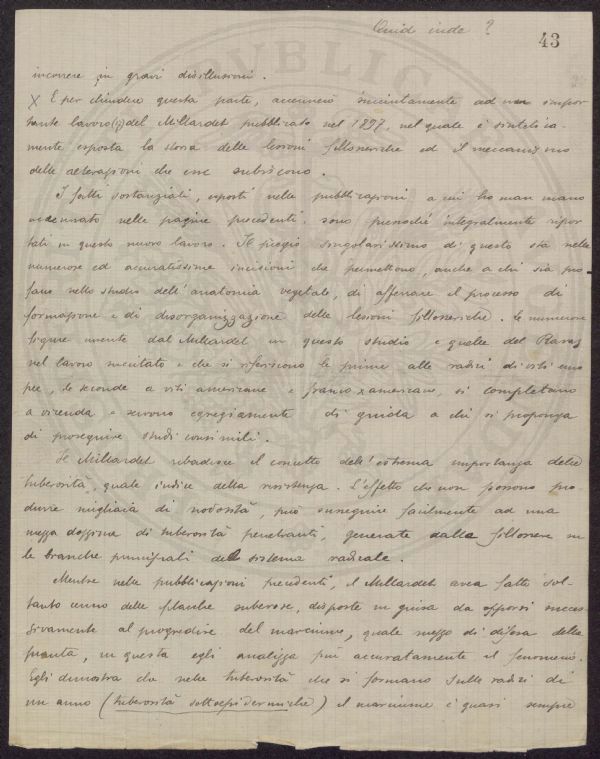 Quid inde ?
43
incorrere in gravi disillusioni.
X E per chiudere questa parte, accennerò succintamente ad un impor
tante lavoro (1) del Millardet pubblicato nel 1897, nel quale è sintetica-
mente esposta la storia delle lesioni fillosseriche ed il meccanismo
delle alterazioni che esse subiscono.
I fatti sostanziali, esposti nelle pubblicazioni a cui ho man mano
accennato nelle pagine precedenti sono pressochè integralmente ripor
tati in questo nuovo lavoro. Il pregio singolarissimo di questo sta nelle
numerose ed accuratissime incisioni che permettono, anche a chi sia pro
fano nello studio dell'anatomia vegetale, di afferrare il processo di
formazione e di disorganizzazione delle lesioni fillosseriche. Le numerose
figure unente dal Millardet in questo studio e quelle del Ravaz
nel lavoro succitato e che si riferiscono le prime alle radici di viti euro
pee, le seconde a viti americane e franco x americane, si completano
a vicenda e servono egregiamente di guida a chi si proponga
di proseguire studi consimili.
Il Millardet ribadisce il concetto dell'estrema importanza delle
tuberosità, quale indice della resistenza. L'effetto che non possono pro
durre migliaia di nodosità, può susseguire facilmente ad una
mezza dozzina di tuberosità penetranti, generate dalla fillossera su
le branche principali del sistema radicale.
Mentre nelle pubblicazioni precedenti, il Millardet avea fatto sol-
tanto cenno delle placche suberose, disposte in guisa da opporsi succes
sivamente al progredire del marciume, quale mezzo di difesa della
pianta, in questa egli analizza più accuratamente il fenomeno.
Egli dimostra che nelle tuberosità che si formano sulle radici di
un anno (tuberosità sottoepidermiche) il marciume è quasi sempre